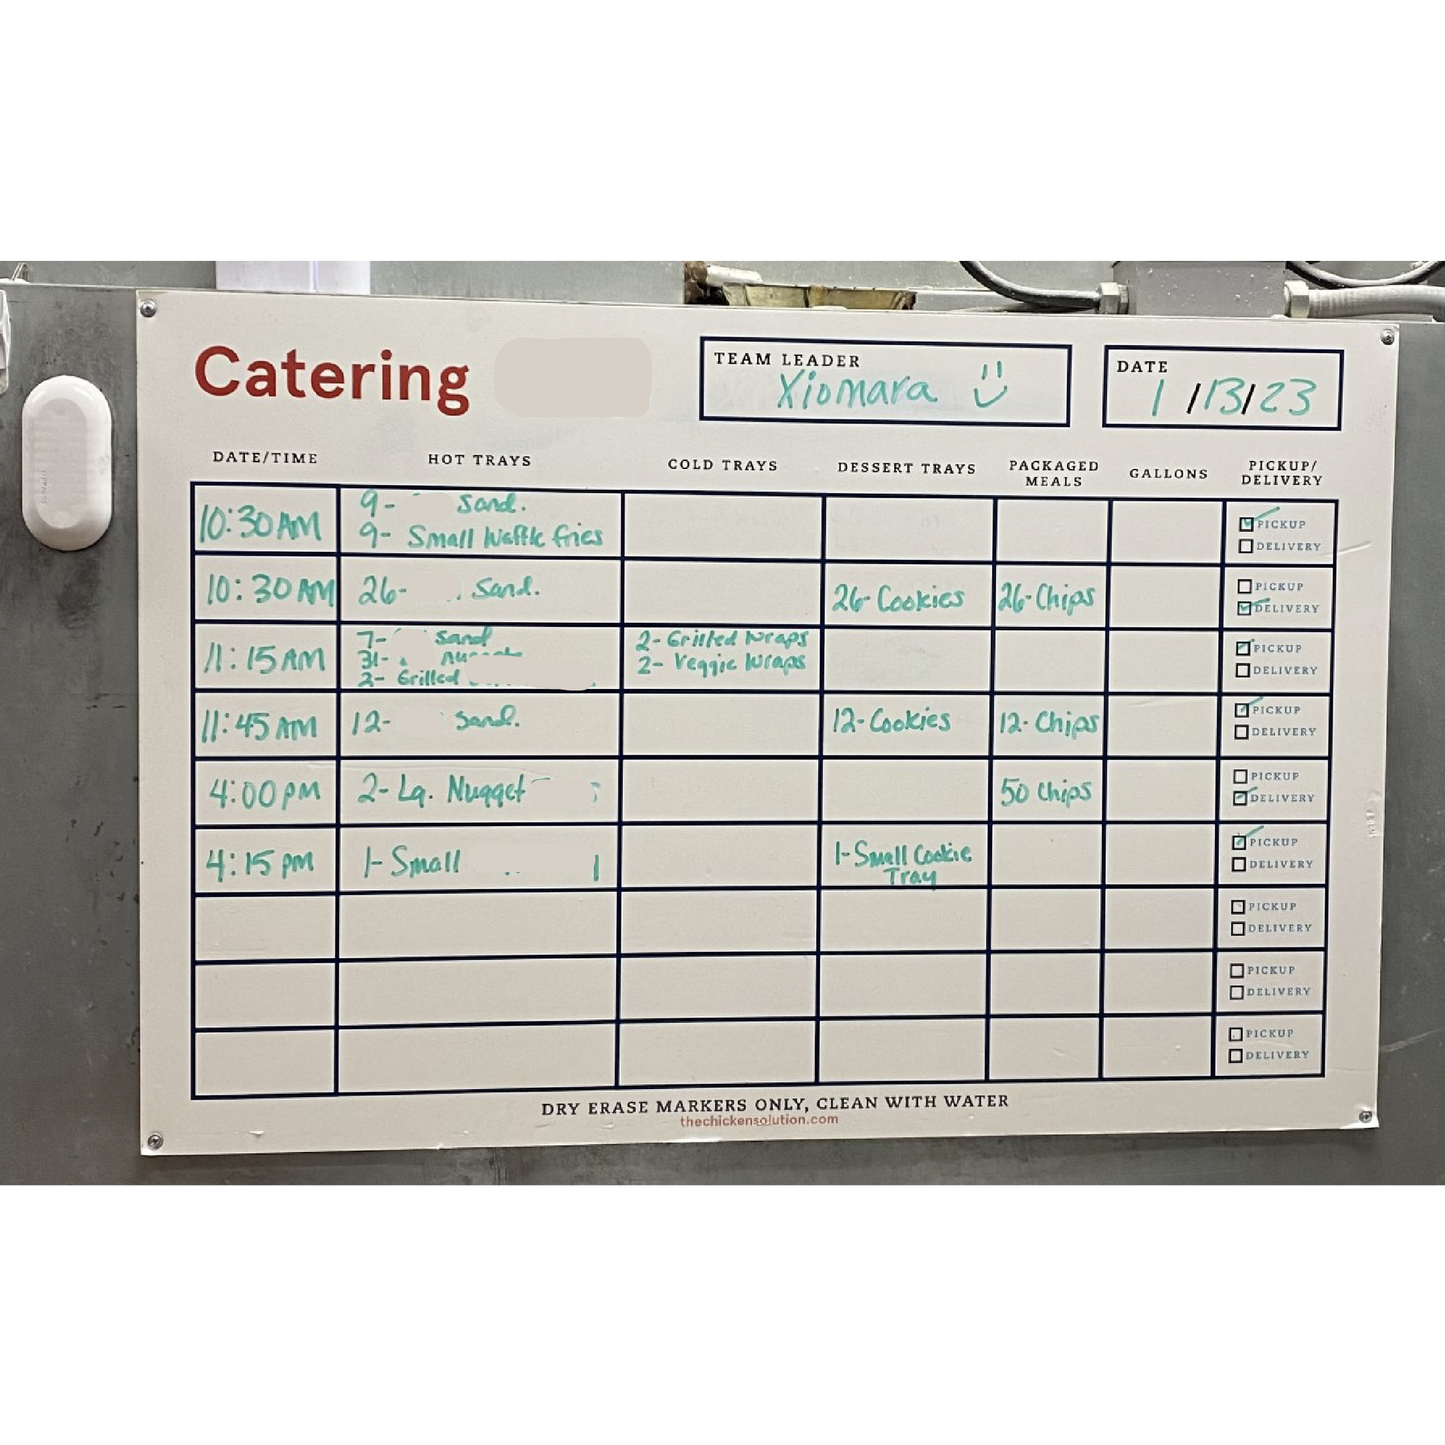 Catering
TEAM LEADER
Xiomara
DATE
1/13/23
DATE/TIME HOT TRAYS COLD TRAYS DESSERT TRAYS PACKAGED MEALS GALLONS PICKUP/DELIVERY
10:30 AM 9- Sand. PICKUP
9- Small Waffle fries DELIVERY
10:30 AM 26- Sand. 26-Cookies 26-Chips PICKUP
DELIVERY
11:15 AM 7- Sand 2- Grilled Wraps PICKUP
31- 2- Veggie Wraps DELIVERY
2- Grilled
11:45 AM 12- Sand. 12-Cookies 12-Chips PICKUP
DELIVERY
4:00 PM 2- Lg. Nugget 50 Chips PICKUP
DELIVERY
4:15 PM 1-Small 1-Small Cookie PICKUP
Tray DELIVERY
PICKUP
DELIVERY
PICKUP
DELIVERY
PICKUP
DELIVERY
DRY ERASE MARKERS ONLY, CLEAN WITH WATER
thechickensolution.com